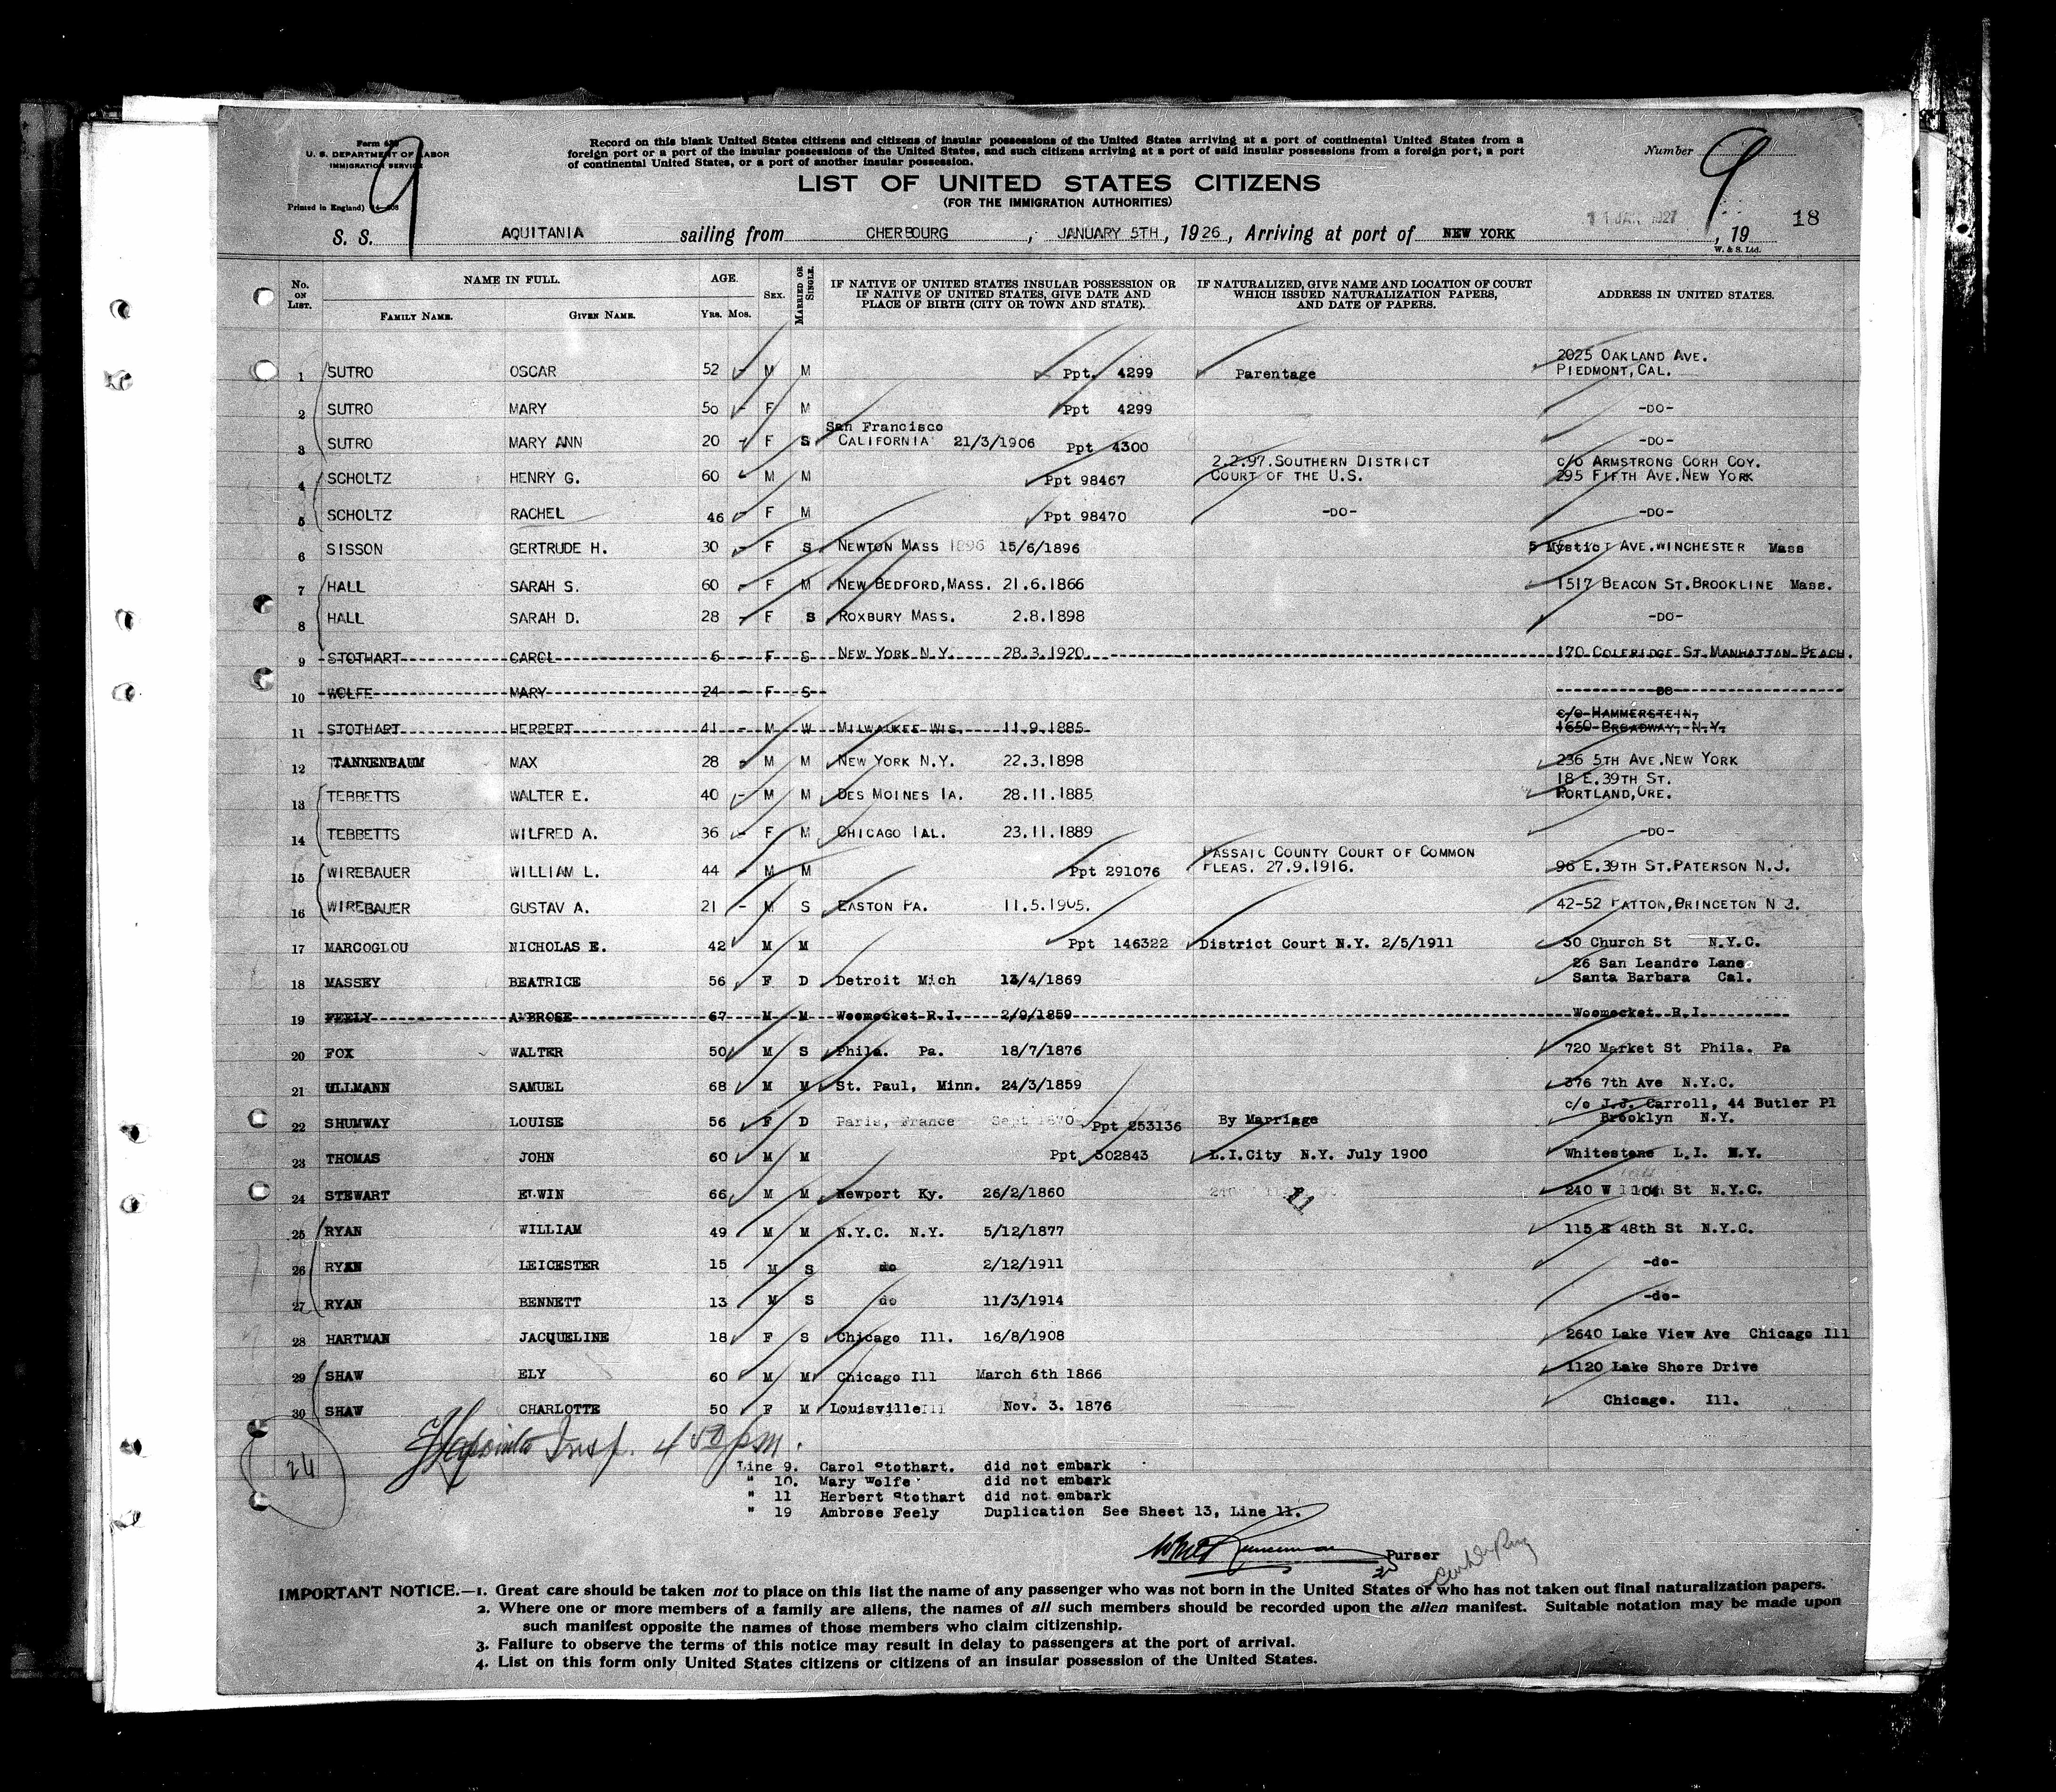 Form 630
U. S. DEPARTMENT OF LABOR
IMMIGRATION SERVICE
Printed in England)
9
Record on this blank United States citizens and citizens of insular possessions of the United States arriving at a port of continental United States from a
foreign port or a port of the insular possessions of the United States, and such citizens arriving at a port of said insular possessions from a foreign port, a port
of continental United States, or a port of another insular possession.
Number 9
LIST OF UNITED STATES CITIZENS
(FOR THE IMMIGRATION AUTHORITIES)
11 JAN 1927
18
S. S. AQUITANIA sailing from CHERBOURG, JANUARY 5TH, 1926, Arriving at port of NEW YORK, 19
W. & S. Ltd.
No. ON LIST. NAME IN FULL. FAMILY NAME. GIVEN NAME. AGE. YRS. MOS. SEX. MARRIED OR SINGLE. IF NATIVE OF UNITED STATES INSULAR POSSESSION OR IF NATIVE OF UNITED STATES, GIVE DATE AND PLACE OF BIRTH (CITY OR TOWN AND STATE). IF NATURALIZED, GIVE NAME AND LOCATION OF COURT WHICH ISSUED NATURALIZATION PAPERS, AND DATE OF PAPERS. ADDRESS IN UNITED STATES.
2025 OAKLAND AVE.
1 SUTRO OSCAR 52 - M M Ppt. 4299 Parentage PIEDMONT, CAL.
2 SUTRO MARY 50 - F M Ppt 4299 -DO-
San Francisco
3 SUTRO MARY ANN 20 - F S CALIFORNIA 21/3/1906 Ppt 4300 -DO-
2.2.97.SOUTHERN DISTRICT c/o ARMSTRONG CORH COY.
4 SCHOLTZ HENRY G. 60 M M Ppt 98467 COURT OF THE U.S. 295 FIFTH AVE.NEW YORK
5 SCHOLTZ RACHEL 46 - F M Ppt 98470 -DO- -DO-
6 SISSON GERTRUDE H. 30 - F S. NEWTON MASS 1896 15/6/1896 5 Mystict AVE.WINCHESTER Mass
7 HALL SARAH S. 60 - F M NEW BEDFORD,MASS. 21.6.1866 1517 BEACON ST.BROOKLINE Mass.
8 HALL SARAH D. 28 - F S ROXBURY MASS. 2.8.1898 -DO-
9 STOTHART CAROL 6 - F S NEW YORK N.Y. 28.3.1920. 170 COLERIDGE ST.MANHATTAN BEACH.
10 WOLFE MARY 24 - F S DO
c/o HAMMERSTEIN,
11 STOTHART HERBERT 41 - M W MILWAUKEE WIS. 11.9.1885. 1650 BROADWAY, N.Y.
12 TANNENBAUM MAX 28 - M M NEW YORK N.Y. 22.3.1898 236 5TH AVE.NEW YORK
18 E.39TH ST.
13 TEBBETTS WALTER E. 40 - M M DES MOINES IA. 28.11.1885 PORTLAND,ORE.
14 TEBBETTS WILFRED A. 36 - F M CHICAGO IAL. 23.11.1889 -DO-
PASSAIC COUNTY COURT OF COMMON
15 WIREBAUER WILLIAM L. 44 M M Ppt 291076 PLEAS. 27.9.1916. 96 E.39TH ST.PATERSON N.J.
16 WIREBAUER GUSTAV A. 21 - M S EASTON PA. 11.5.1905. 42-52 PATTON,PRINCETON N J.
17 MARCOGLOU NICHOLAS E. 42 M M Ppt 146322 District Court N.Y. 2/5/1911 30 Church St N.Y.C.
26 San Leandro Lane
18 MASSEY BEATRICE 56 F D Detroit Mich 13/4/1869 Santa Barbara Cal.
19 FEELY AMBROSE 67 M M Woomocket R.I. 2/9/1859 Woomocket R.I.
20 FOX WALTER 50 M S Phila. Pa. 18/7/1876 720 Market St Phila. Pa
21 ULLMANN SAMUEL 68 M M St. Paul, Minn. 24/3/1859 376 7th Ave N.Y.C.
c/o J.J. Carroll, 44 Butler Pl
22 SHUMWAY LOUISE 56 F D Paris, France Sept 1870 Ppt 253136 By Marriage Brooklyn N.Y.
23 THOMAS JOHN 60 M M Ppt 302843 L.I.City N.Y. July 1900 Whitestone L.I. N.Y.
24 STEWART ELWIN 66 M M Newport Ky. 26/2/1860 240 W 104 St N.Y.C.
25 RYAN WILLIAM 49 M M N.Y.C. N.Y. 5/12/1877 115 E 48th St N.Y.C.
26 RYAN LEICESTER 15 M S do 2/12/1911 -do-
27 RYAN BENNETT 13 M S do 11/3/1914 -do-
28 HARTMAN JACQUELINE 18 F S Chicago Ill. 16/8/1908 2640 Lake View Ave Chicago Ill
29 SHAW ELY 60 M M Chicago Ill March 6th 1866 1120 Lake Shore Drive
30 SHAW CHARLOTTE 50 F M Louisville Ill Nov. 3. 1876 Chicago. Ill.
Insp. 4 50 pm.
Line 9. Carol Stothart. did not embark
" 10. Mary Wolfe did not embark
" 11 Herbert Stothart did not embark
" 19 Ambrose Feely Duplication See Sheet 13, Line 11.
Purser
IMPORTANT NOTICE.—1. Great care should be taken not to place on this list the name of any passenger who was not born in the United States or who has not taken out final naturalization papers.
2. Where one or more members of a family are aliens, the names of all such members should be recorded upon the alien manifest. Suitable notation may be made upon
such manifest opposite the names of those members who claim citizenship.
3. Failure to observe the terms of this notice may result in delay to passengers at the port of arrival.
4. List on this form only United States citizens or citizens of an insular possession of the United States.